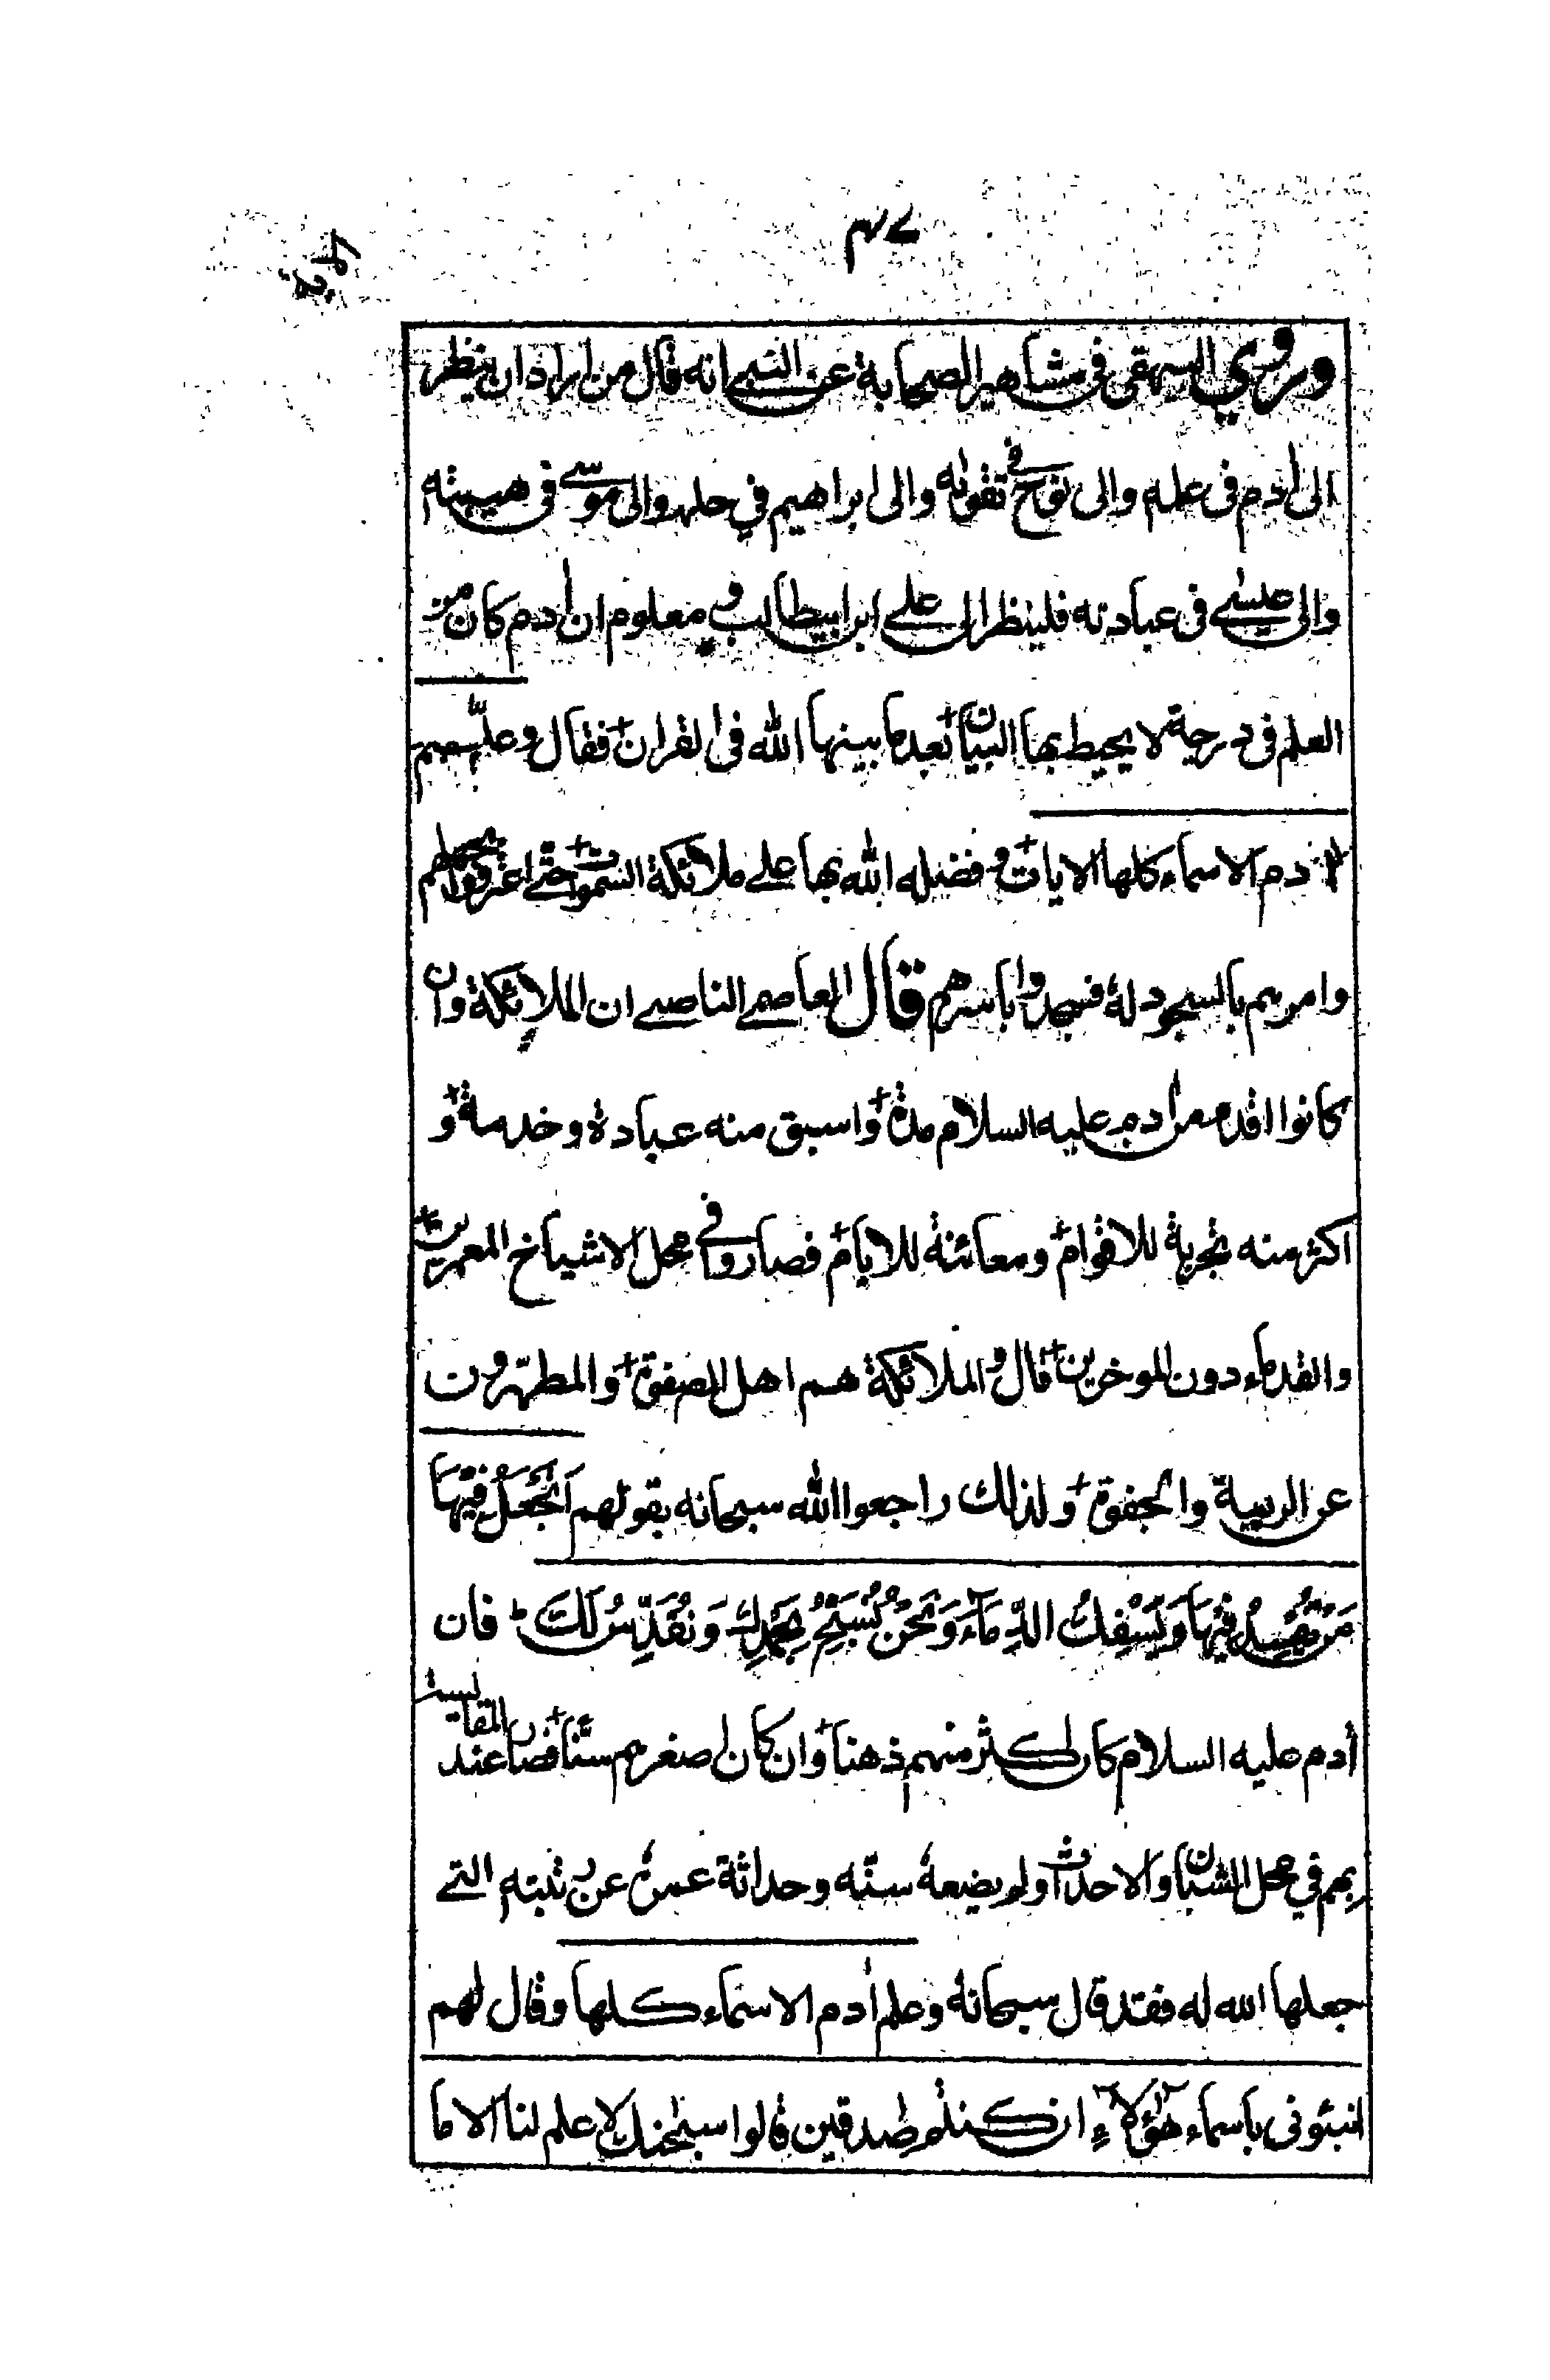 ٤٧
وروي البيهقي في مشاهير الصحابة عن النبي انه قال من اراد ان ينظر
الى أدم فى علمه والى نوح فى تقوٰىه والى ابراهيم في حلمه والى موسى فى هيبته
والى عيسٰى فى عبادته فلينظر الى على ابن ابيطالب و معلوم ان أدم كان من
العلم فى درجة لا يحيط بها البيان بعد ما بينها الله فى القران فقال وعلّمهم
أدم الاسماء كلها الايات و فضله الله بها على ملائكة السموات حتى اعترفوا بجهلهم
وامرهم بالسجود له فسجدوا باسرهم قال العاصمى الناصبى ان الملائكة وان
كانوا اقدم من أدم عليه السلام مدة واسبق منه عبادة وخدمة و
اكثر منه تجربة للاقوام ومعائنة للايام فصاروا فى محل الاشياخ المعمرين
والقدماء دون الموخرين قال و الملائكة هم اهل الصفوة والمطهّرون
عن الريبة والجفوة ولذلك راجعوا الله سبحانه بقولهم اَتَجْعَلُ فِيْهَا
مَنْ يُّفْسِدُ فِيْهَا وَيَسْفِكُ الدِّمَآءَ وَنَحْنُ نُسَبِّحُ بِحَمْدِكَ وَنُقَدِّسُ لَكَ ط فان
أدم عليه السلام كان اكثر منهم ذهنا وان كان اصغرهم سنّا فصار عند المقايسة
بهم في محل الشبان والاحداث ولم يضعه سنّه وحداثة عمره عن رتبته التى
جعلها الله له فقد قال سبحانه وعلم أدم الاسماء كلها وقال لهم
انبئونى باسماء هٰؤلاءِ ان كنتم صٰدقين قالوا سبحٰنك لا علم لنا الا ما